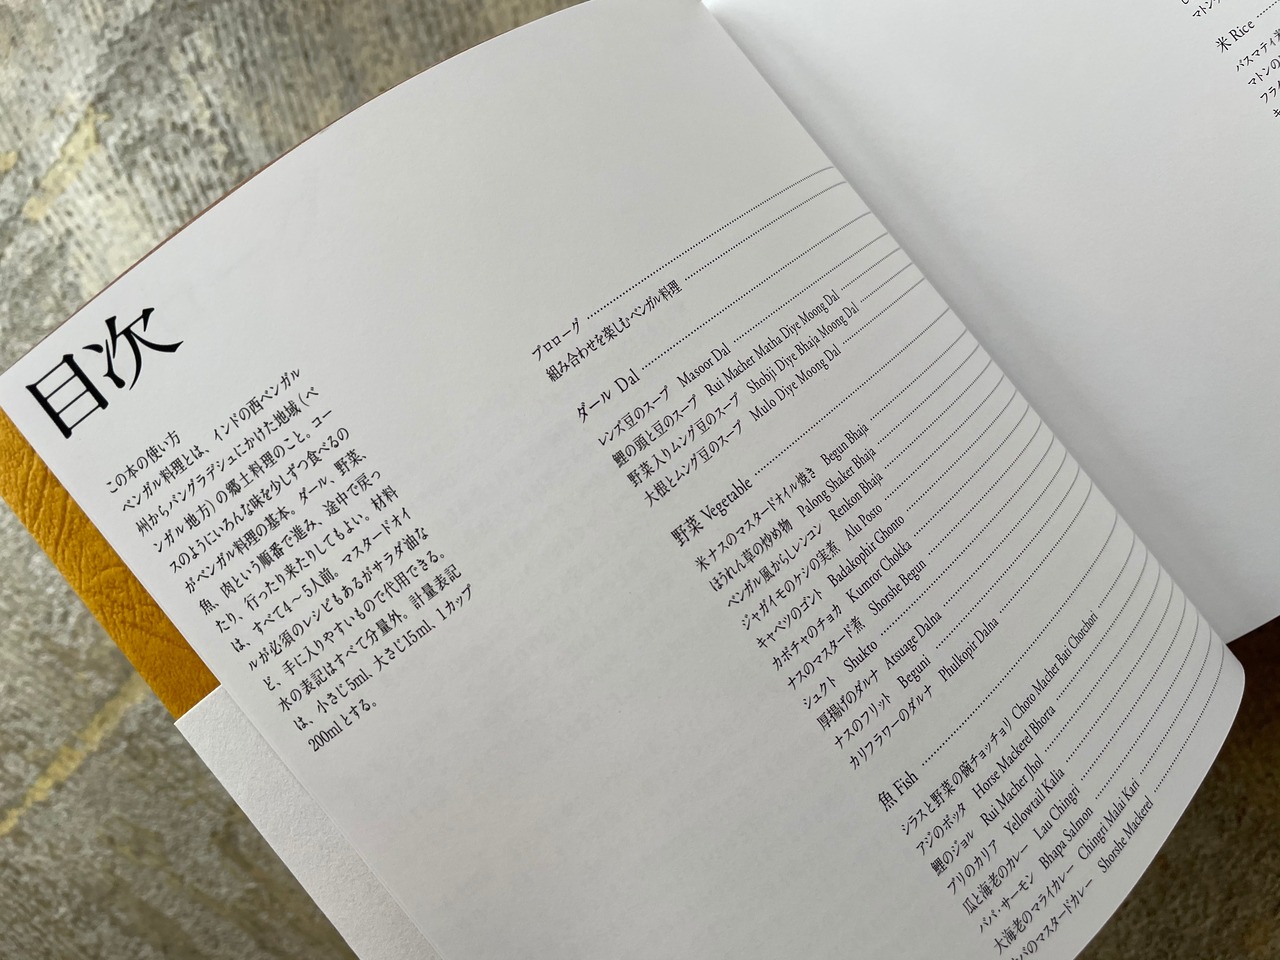 目次
この本の使い方
ベンガル料理とは、インドの西ベンガル
州からバングラデシュにかけた地域（ベ
ンガル地方）の郷土料理のこと。コー
スのようにいろんな味を少しずつ食べるの
がベンガル料理の基本。ダール、野菜、
魚、肉という順番で進み、途中で戻っ
たり、行ったり来たりしてもよい。材料
は、すべて4～5人前。マスタードオイ
ルが必須のレシピもあるがサラダ油な
ど、手に入りやすいもので代用できる。
水の表記はすべて分量外。計量表記
は、小さじ5ml、大さじ15ml、1カップ
200mlとする。
プロローグ
組み合わせを楽しむベンガル料理
ダール Dal
レンズ豆のスープ Masoor Dal
鯉の頭と豆のスープ Rui Macher Matha Diye Moong Dal
野菜入りムング豆のスープ Shobji Diye Bhaja Moong Dal
大根とムング豆のスープ Mulo Diye Moong Dal
野菜 Vegetable
米ナスのマスタードオイル焼き Begun Bhaja
ほうれん草の炒め物 Palong Shaker Bhaja
ベンガル風からしレンコン Renkon Bhaja
ジャガイモのケシの実煮 Alu Posto
キャベツのゴント Badakophir Ghonto
カボチャのチョカ Kumror Chokka
ナスのマスタード煮 Shorshe Begun
シュクト Shukto
厚揚げのダルナ Atsuage Dalna
ナスのフリット Beguni
カリフラワーのダルナ Phulkopir Dalna
魚 Fish
シラスと野菜の碗チョッチョリ Choto Macher Bati Chorchori
アジのボッタ Horse Mackerel Bhorta
鯉のジョル Rui Macher Jhol
ブリのカリア Yellowtail Kalia
瓜と海老のカレー Lau Chingri
パパ・サーモン Bhapa Salmon
大海老のマライカレー Chingri Malai Kari
バのマスタードカレー Shorshe Mackerel
米 Rice
バスマティ米
マトンの
フライ